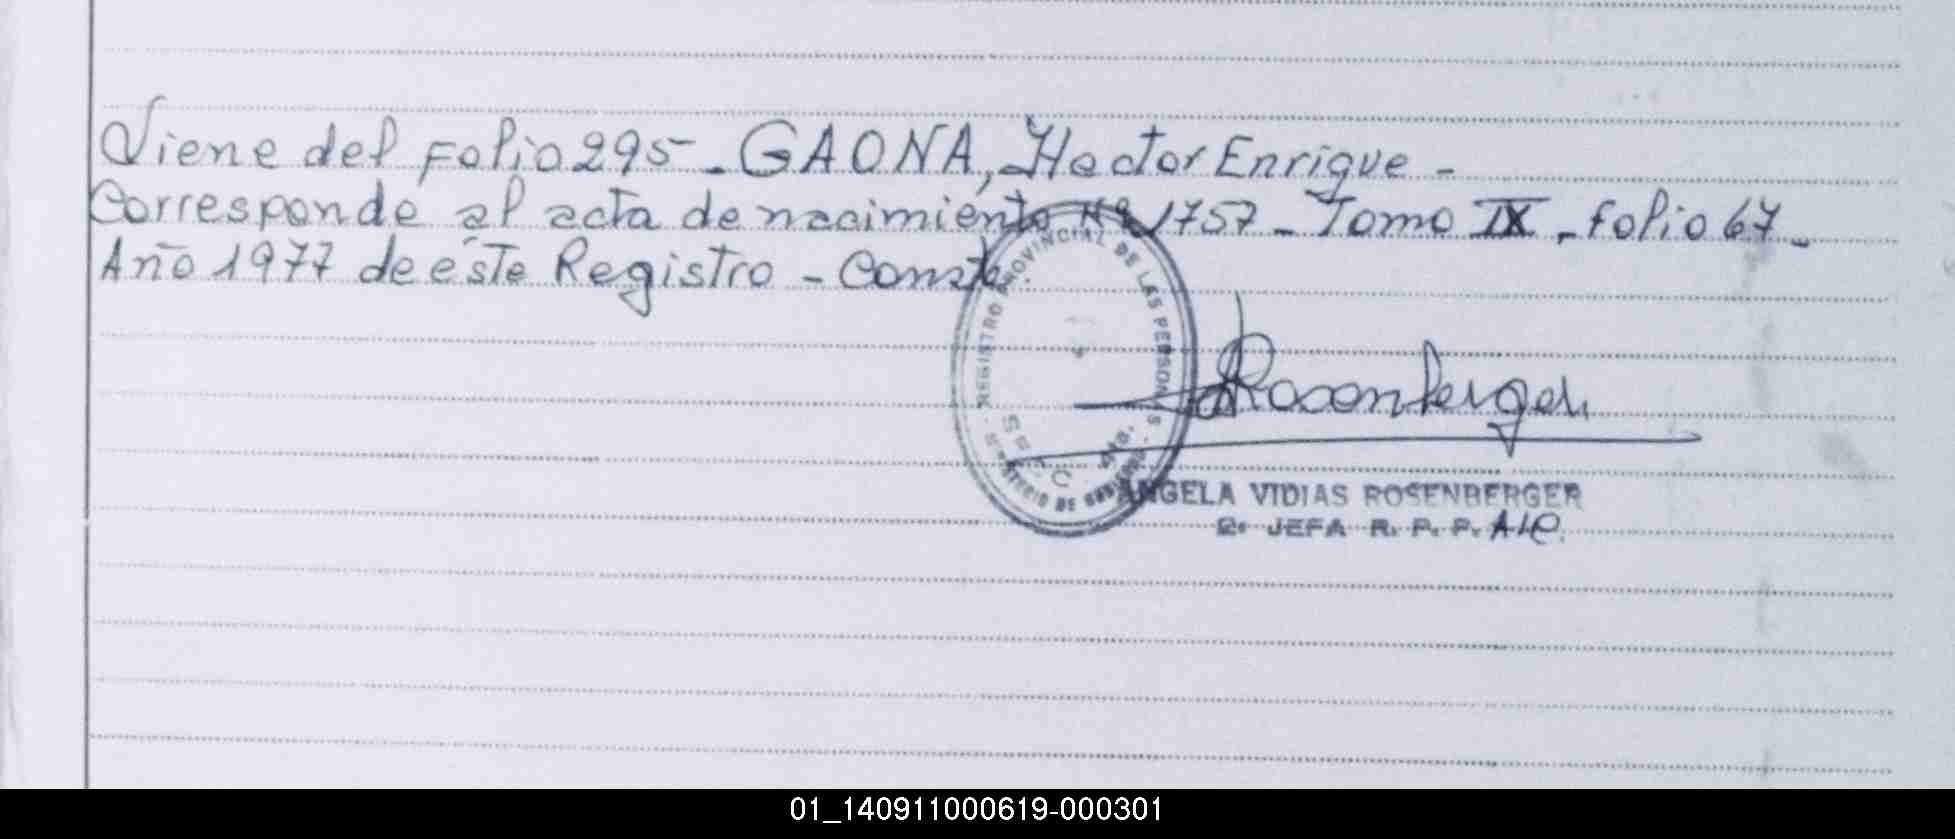 Viene del Folio 295 - GAONA, Hector Enrique -
Corresponde al acta de nacimiento Nº 1757 - Tomo IX - folio 67 -
Año 1977 de éste Registro - Conste.
REGISTRO PROVINCIAL DE LAS PERSONAS
DE
Rosenberger
ANGELA VIDIAS ROSENBERGER
2ª JEFA R. P. P. A/C.
01_140911000619-000301